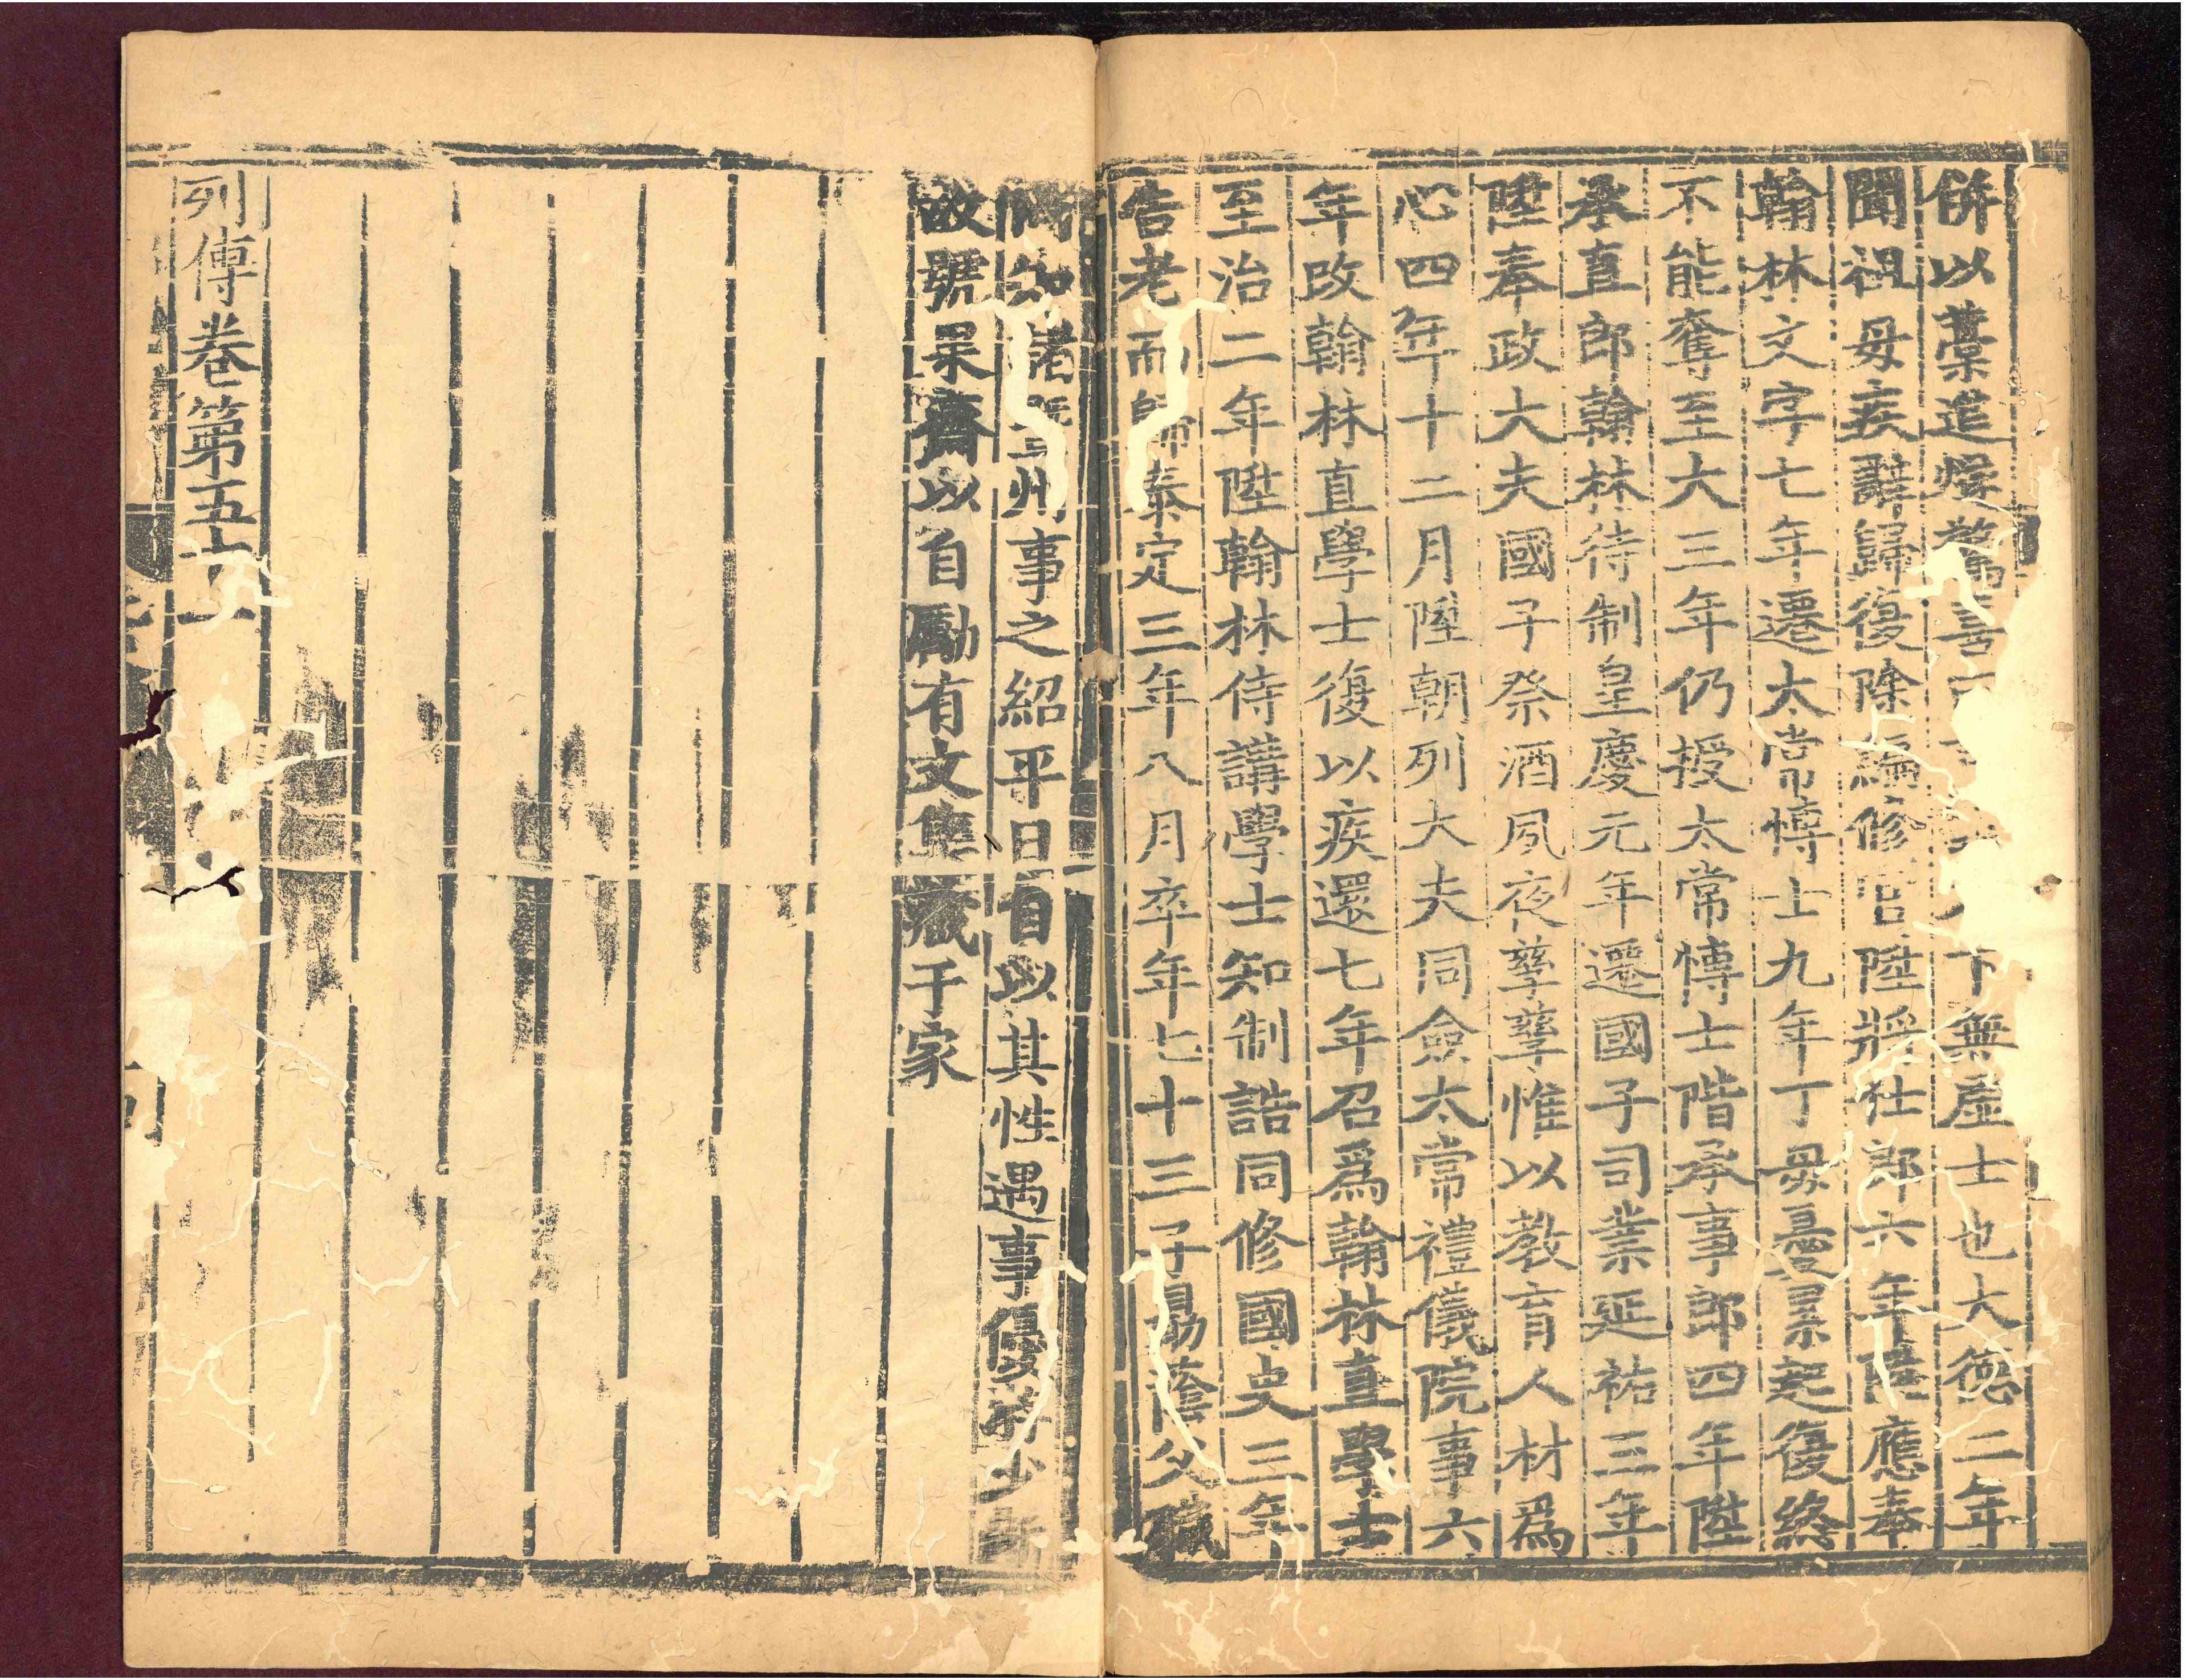 併以藁進燧驚喜下無虛士也大德二年
聞祖母疾辭歸復除編修官陞將仕郎六年陞應奉
翰林文字七年遷太常博士九年丁母憂累起復終
不能奪至大三年仍授太常博士階承事郎四年陞
承直郎翰林待制皇慶元年遷國子司業延祐三年
陞奉政大夫國子祭酒夙夜孳孳惟以教育人材爲
心四年十二月陞朝列大夫同僉太常禮儀院事六
年改翰林直學士復以疾還七年召爲翰林直學士
至治二年陞翰林侍講學士知制誥同修國史三年
告老而歸泰定三年八月卒年七十三子勗蔭父職
同知諸暨州事之紹平日自以其性遇事優游少斷
故號果齋以自勵有文集藏于家
列傳卷第五十一